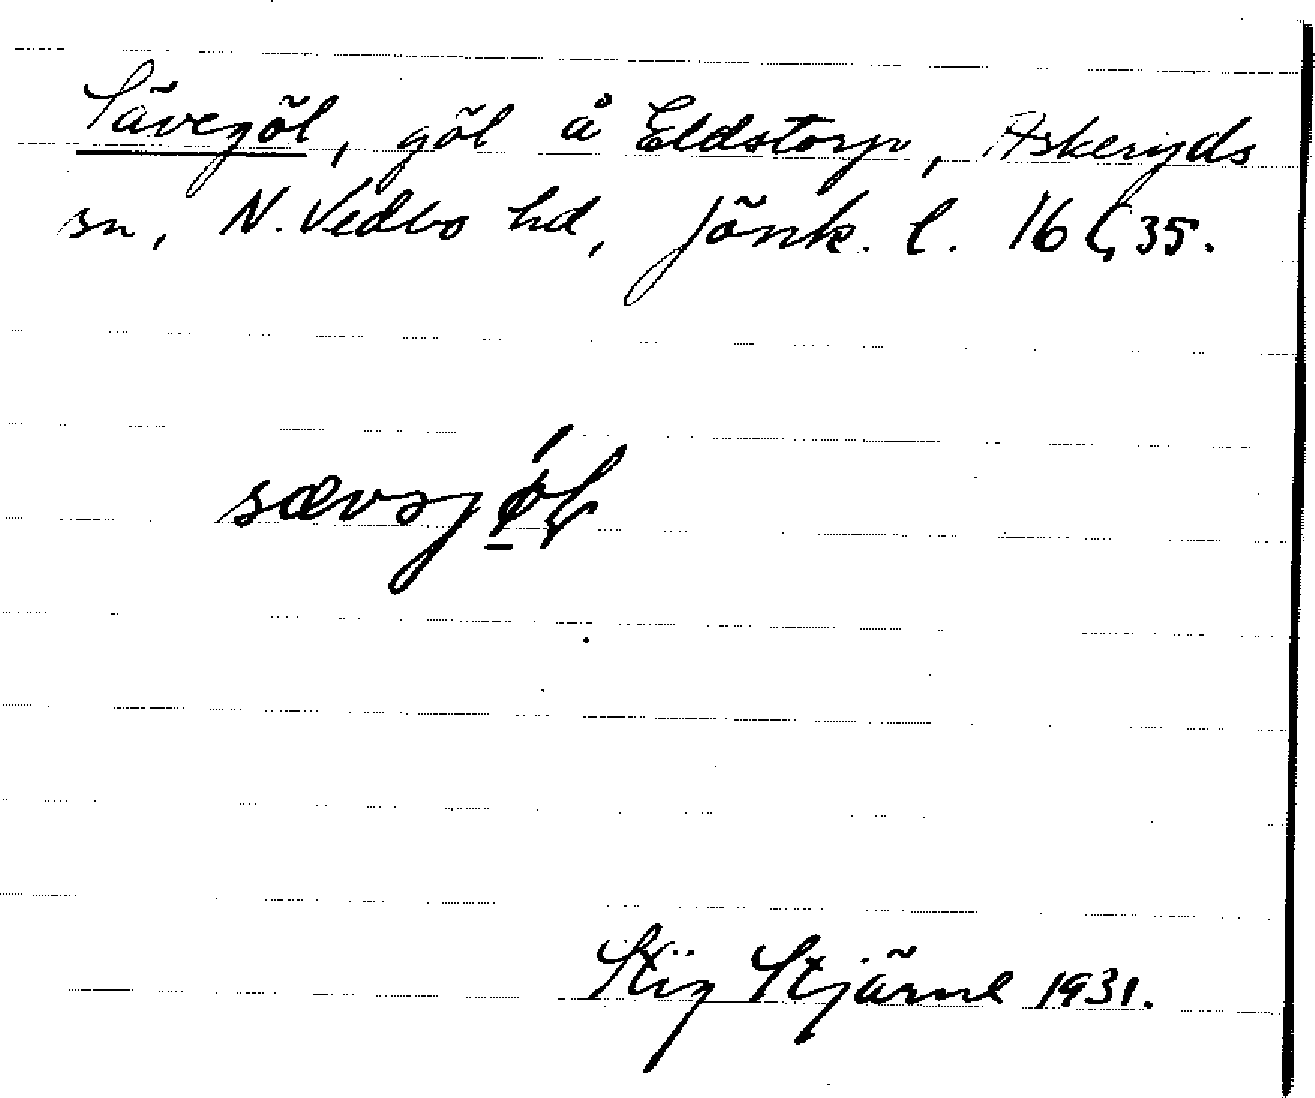 Sävegöl, göl å Eldstorp, Askeryds
sn, N. Vedbo hd, Jönk. l. 16 ζ 35.
sævsjǿ̱l
Stig Stjärne 1931.